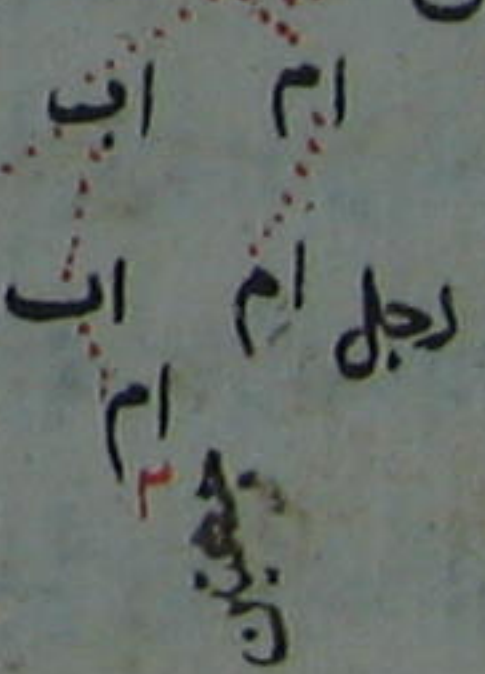 ام اب
رجل ام اب
ام
٣